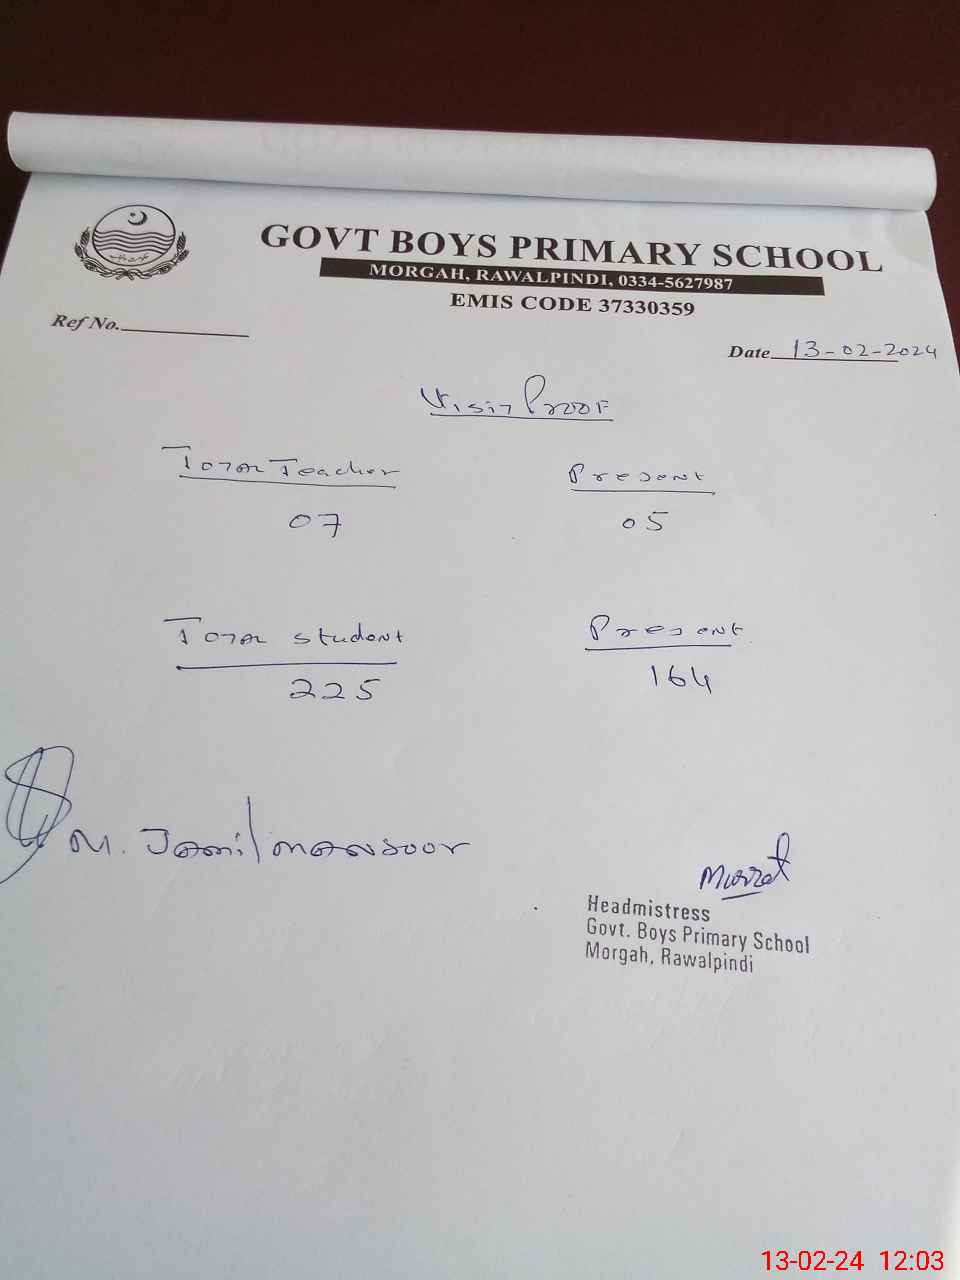 GOVT BOYS PRIMARY SCHOOL
MORGAH, RAWALPINDI, 0334-5627987
EMIS CODE 37330359
Ref No.
Date 13-02-2024
Visit Proof
Total Teacher Present
07 05
Total student Present
225 164
M. Jamil mansoor
Headmistress
Govt. Boys Primary School
Morgah, Rawalpindi
13-02-24 12:03